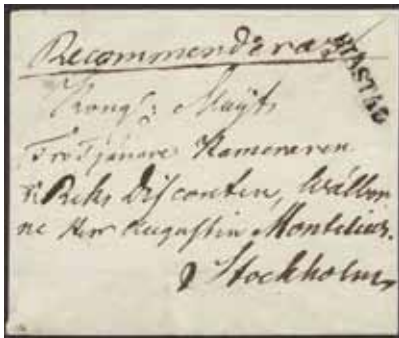 Recommenderas
Kongl: Maÿts
Trotjänare Kamereraren
Riks Disconten, Wälbor
ne Herr Augustin Montelius.
Stockholm